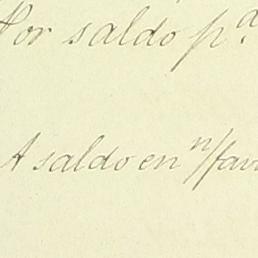 Por saldo p.ª
A saldo en n/fav